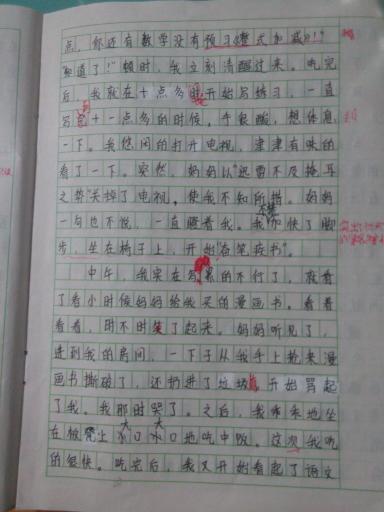 点，你还有数学没有预习《整式加减》！”
“知道了！”顿时，我立刻清醒过来。吃完
后，我就在十点多时开始写练习，一直
写到十一点多的时候，手很酸，想休息
一下。我悠闲的打开电视，津津有味的
看了一下。突然，妈妈以“迅雷不及掩耳
之势”关掉了电视，使我不知所措。妈妈
一句也不说，一直瞪着我。我加快了脚
步，坐在椅子上，开始“奋笔疾书”。
中午，我实在写累的不行了，就看
了看小时候妈妈给我买的漫画书。看着
看着，时不时笑了起来。妈妈听见了，
进到我的房间，一下子从我手上抢来漫
画书撕破了，还扔进了垃圾，开始骂起
了我。我那时哭了。之后，我乖乖地坐
在板凳上大口大口地吃中饭。这次我吃
的很快。吃完后，我又开始看起了语文